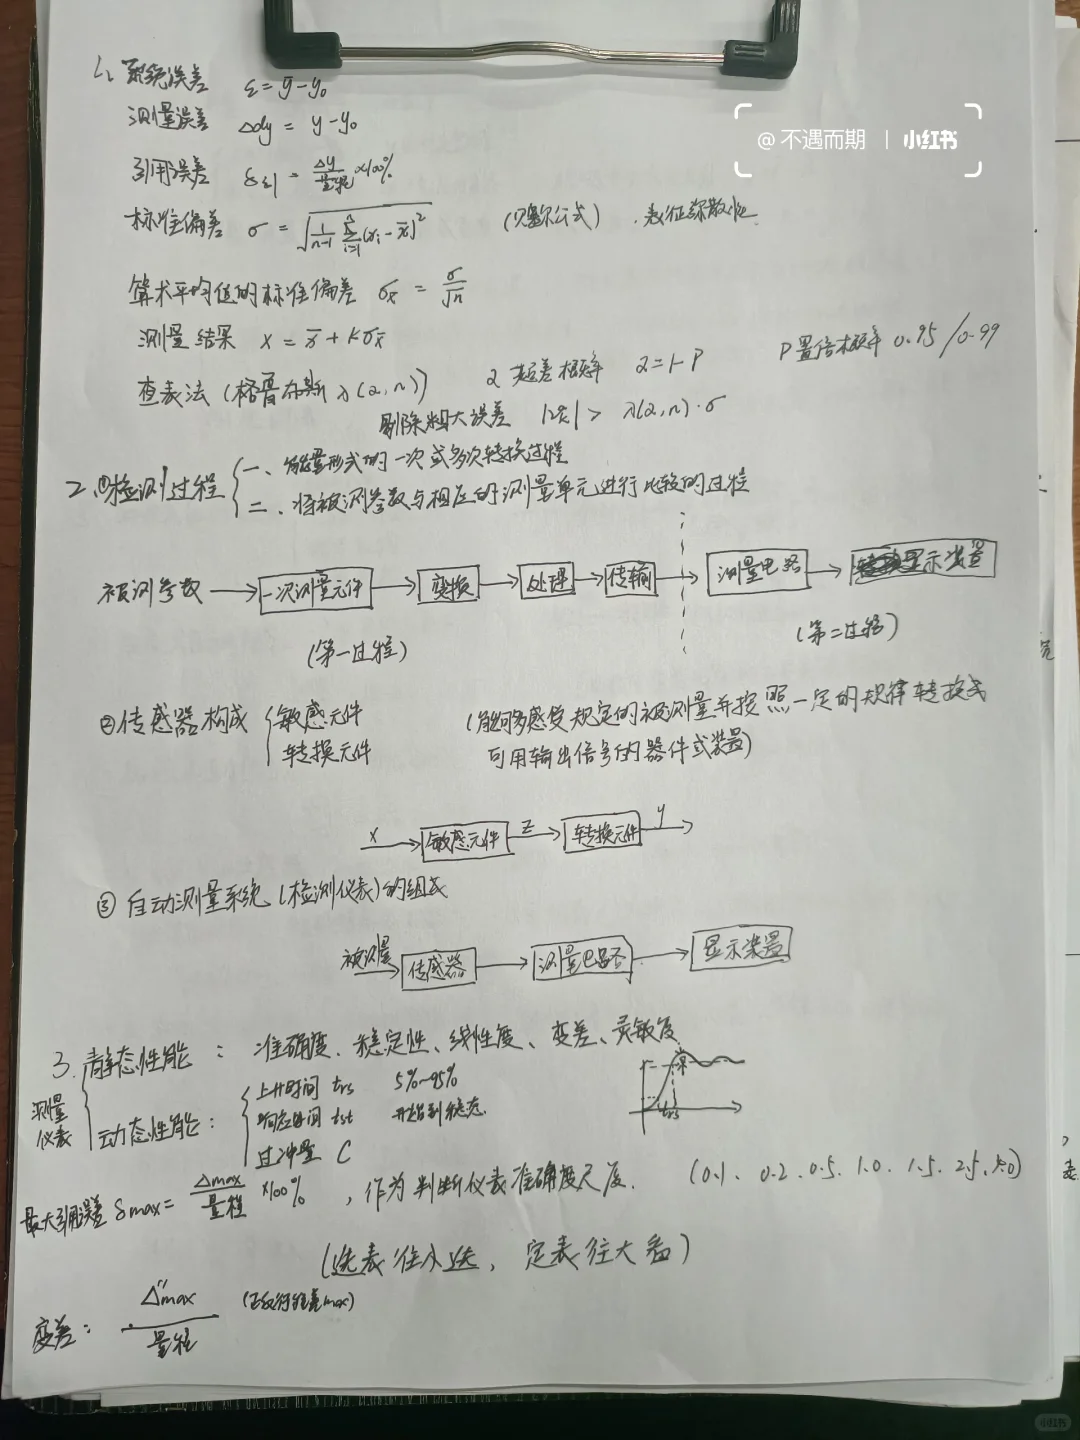 1、系统误差 ε = ȳ - y₀
@ 不遇而期 | 小红书
测量误差 Δdy = y - y₀
引用误差 = Δy/量程 ×100%
标准偏差 σ = √(1/(n-1) Σⁿᵢ₌₁(xᵢ - x̄)²) (贝塞尔公式)、表征弥散性
算术平均值的标准偏差 σx̄ = σ/√n
测量结果 x = x̄ + Kσx̄
查表法 (格鲁布斯 λ(α,n)) α 超差概率 α=1-P P置信概率 0.95/0.99
剔除粗大误差 > λ(α,n)·σ
2、①检测过程 { 一、能量形式的一次或多次转换过程
二、将被测参数与相应的测量单元进行比较的过程
被测参数 → 一次测量元件 → 变换 → 处理 → 传输 → 测量电路 → 显示装置
(第一过程) (第二过程)
②传感器构成 { 敏感元件 (能够感受规定的被测量并按照一定的规律转换成
转换元件 可用输出信号的器件或装置)
x → 敏感元件 z → 转换元件 y →
③ 自动测量系统 (检测仪表) 的组成
被测量 → 传感器 → 测量电路 → 显示装置
3. 静态性能 : 准确度、稳定性、线性度、变差、灵敏度
测量仪表
动态性能: { 上升时间 trs 5%~95%
响应时间 tst 开始到稳态
过冲量 C
trs
最大引用误差 δmax = Δmax/量程 ×100% , 作为判断仪表准确度尺度. (0.1、0.2、0.5、1.0、1.5、2.5、5.0)
(选表往小选, 定表往大看)
变差: Δ''max/量程 (正反行程差max)
小红书